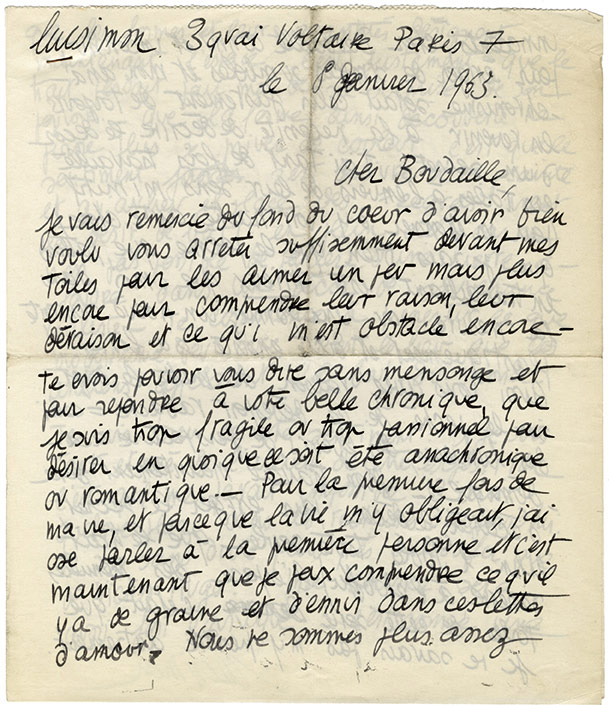 Lucsimon 3 quai Voltaire Paris 7
le 8 Janvier 1963.
Cher Boudaille,
Je vous remercie du fond du coeur d'avoir bien
voulu vous arreter suffisemment devant mes
Toiles pour les aimer un peu mais plus
encore pour comprendre leur raison, leur
déraison et ce qui m'est obstacle encore –
Je crois pouvoir vous dire sans mensonge et
pour repondre à votre belle chronique, que
je suis trop fragile ou trop passionnel pour
désirer en quoique ce soit été anachronique
ou romantique. – Pour la premiere fois de
ma vie, et parceque la vie m'y obligeait, j'ai
osé parler à la première personne et c'est
maintenant que je peux comprendre ce qu'il
y a de graine et d'ennui dans ces lettres
d'amour. Nous ne sommes plus assez